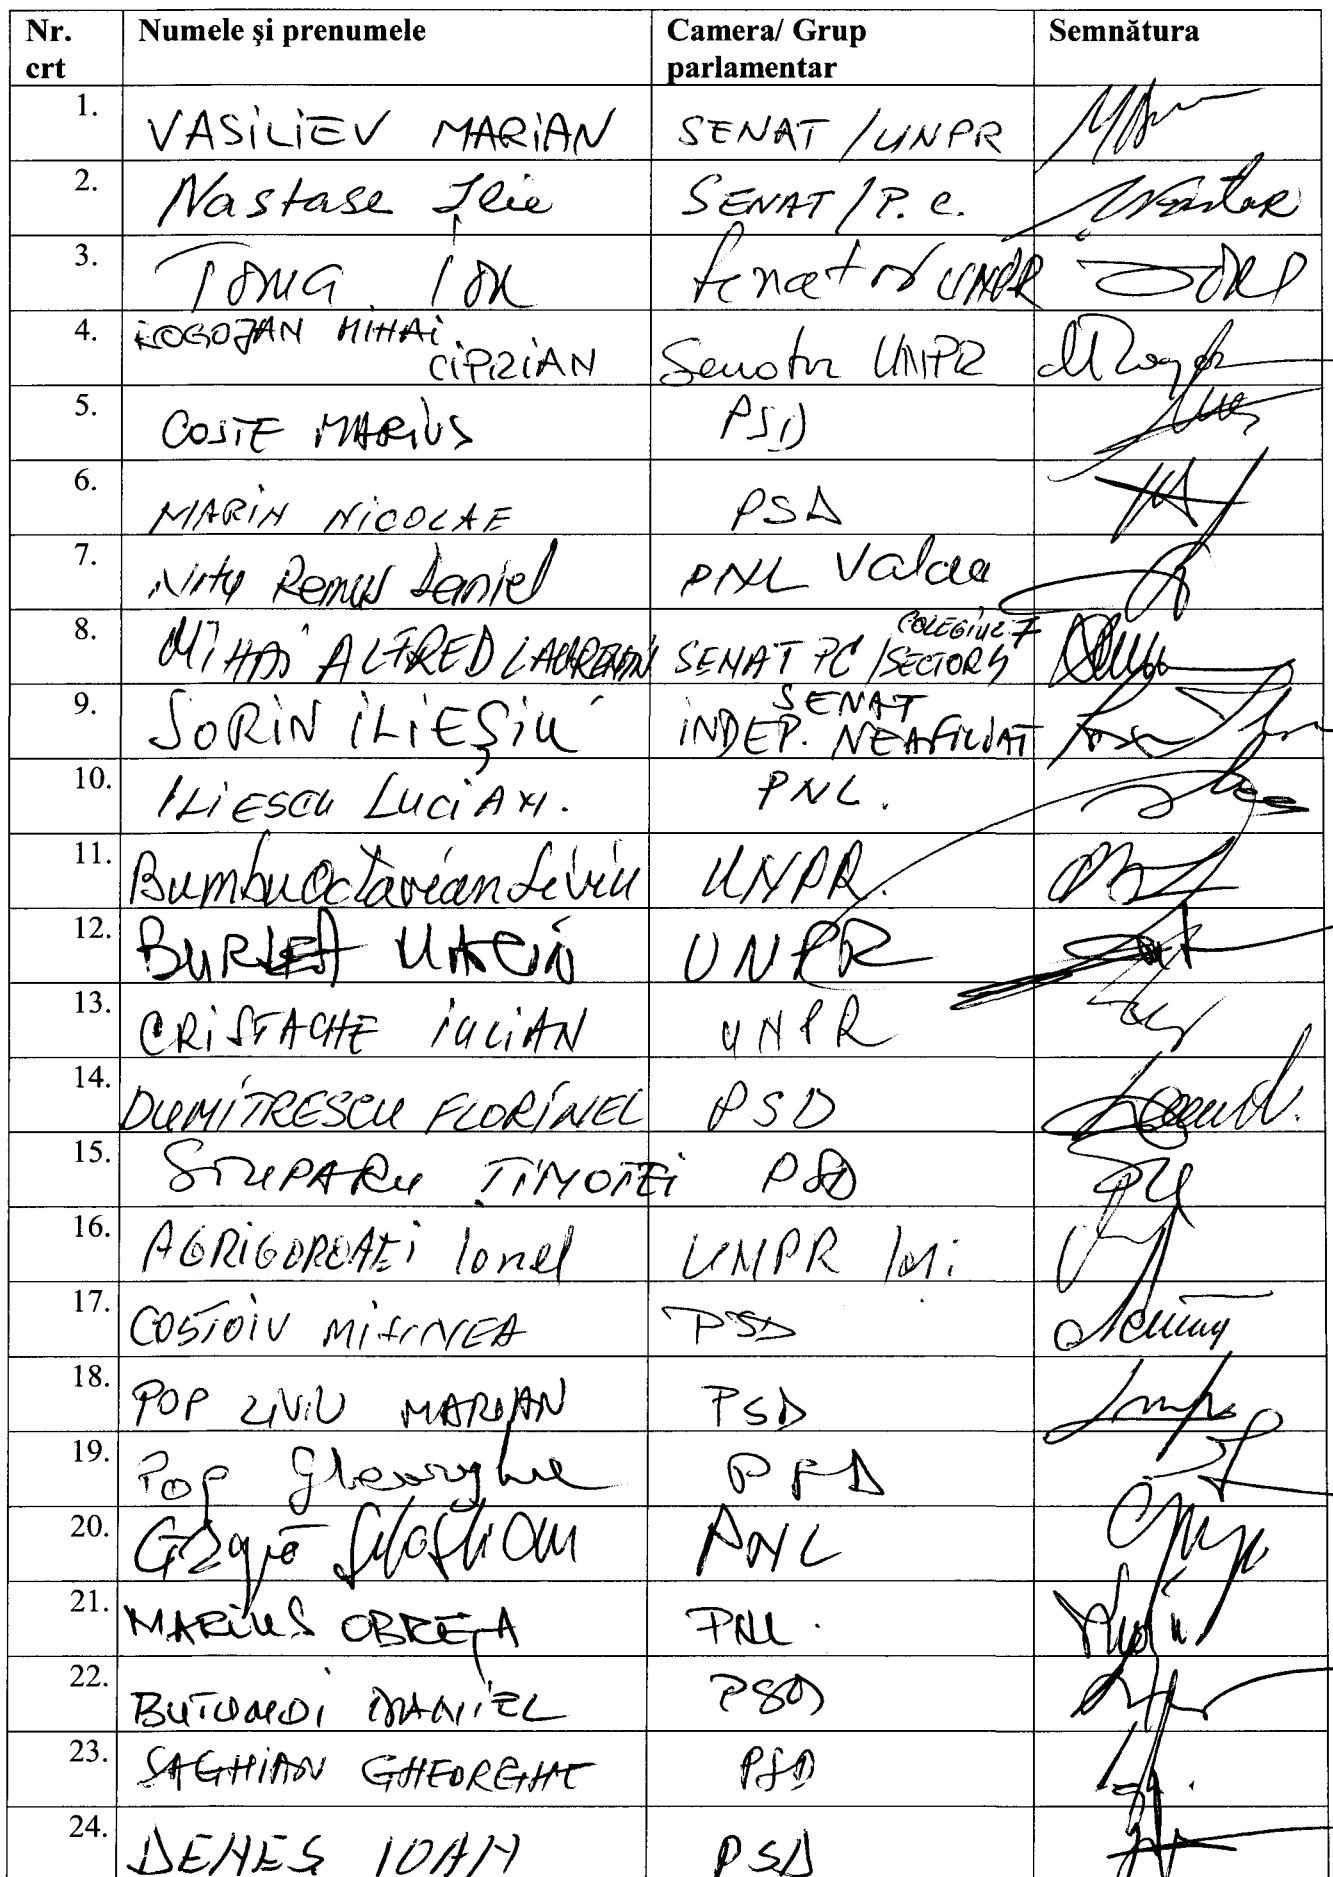 Nr. crt Numele și prenumele Camera/ Grup parlamentar Semnătura
1. VASILIEV MARIAN SENAT / UNPR
2. Nastase Ilie SENAT / P.C.
3. TOMA ION Senator UNPR
4. ROGOJAN MIHAI CIPRIAN Senator UNPR
5. COSTE MARIUS PSD
6. MARIN NICOLAE PSD
7. Nitu Remus Daniel PNL Valcea
8. MIHAI ALFRED LAURENTIU SENAT PC / SECTOR 5 COLEGIUL 7
9. SORIN ILIEȘIU SENAT INDEP. NEAFILIAT
10. ILIESCU LUCIAN. PNL.
11. Bumbu Octavian Liviu UNPR.
12. BURLEA MARIN UNPR
13. CRISTACHE IULIAN UNPR
14. DUMITRESCU FLORINEL PSD
15. STUPARU TIMOTEI PSD
16. AGRIGOROAEI Ionel UNPR Iasi
17. COSTOIU MIHNEA PSD
18. POP LIVIU MARIAN PSD
19. Pop Gheorghe
20. PNL
21. MARIUS OBREJA PNL.
22. BUTUNOI DANIEL PSD
23. SAGHIAN GHEORGHE PSD
24. DENEȘ IOAN PSD